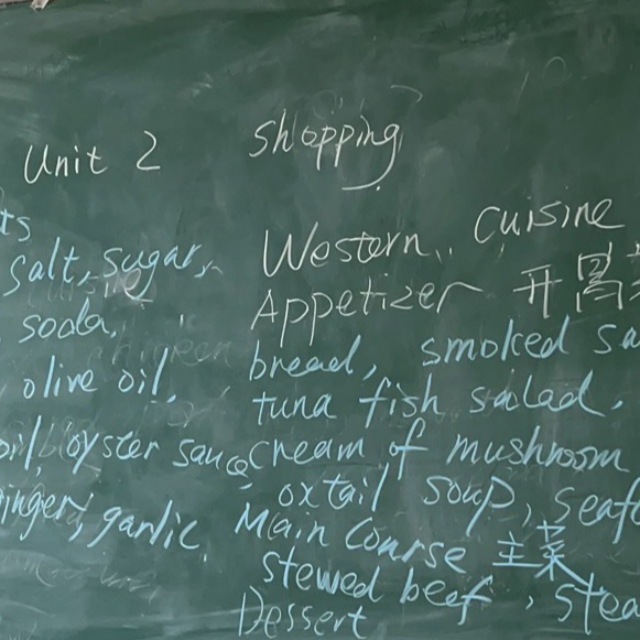 Unit 2 Shopping
ts
salt, sugar,
soda,
olive oil,
oil, oyster sauce,
inger, garlic,
Western cuisine
Appetizer 开胃
bread, smoked sa
tuna fish salad,
cream of mushroom
oxtail soup, seaf
Main coarse 主菜
stewed beef, stea
Dessert